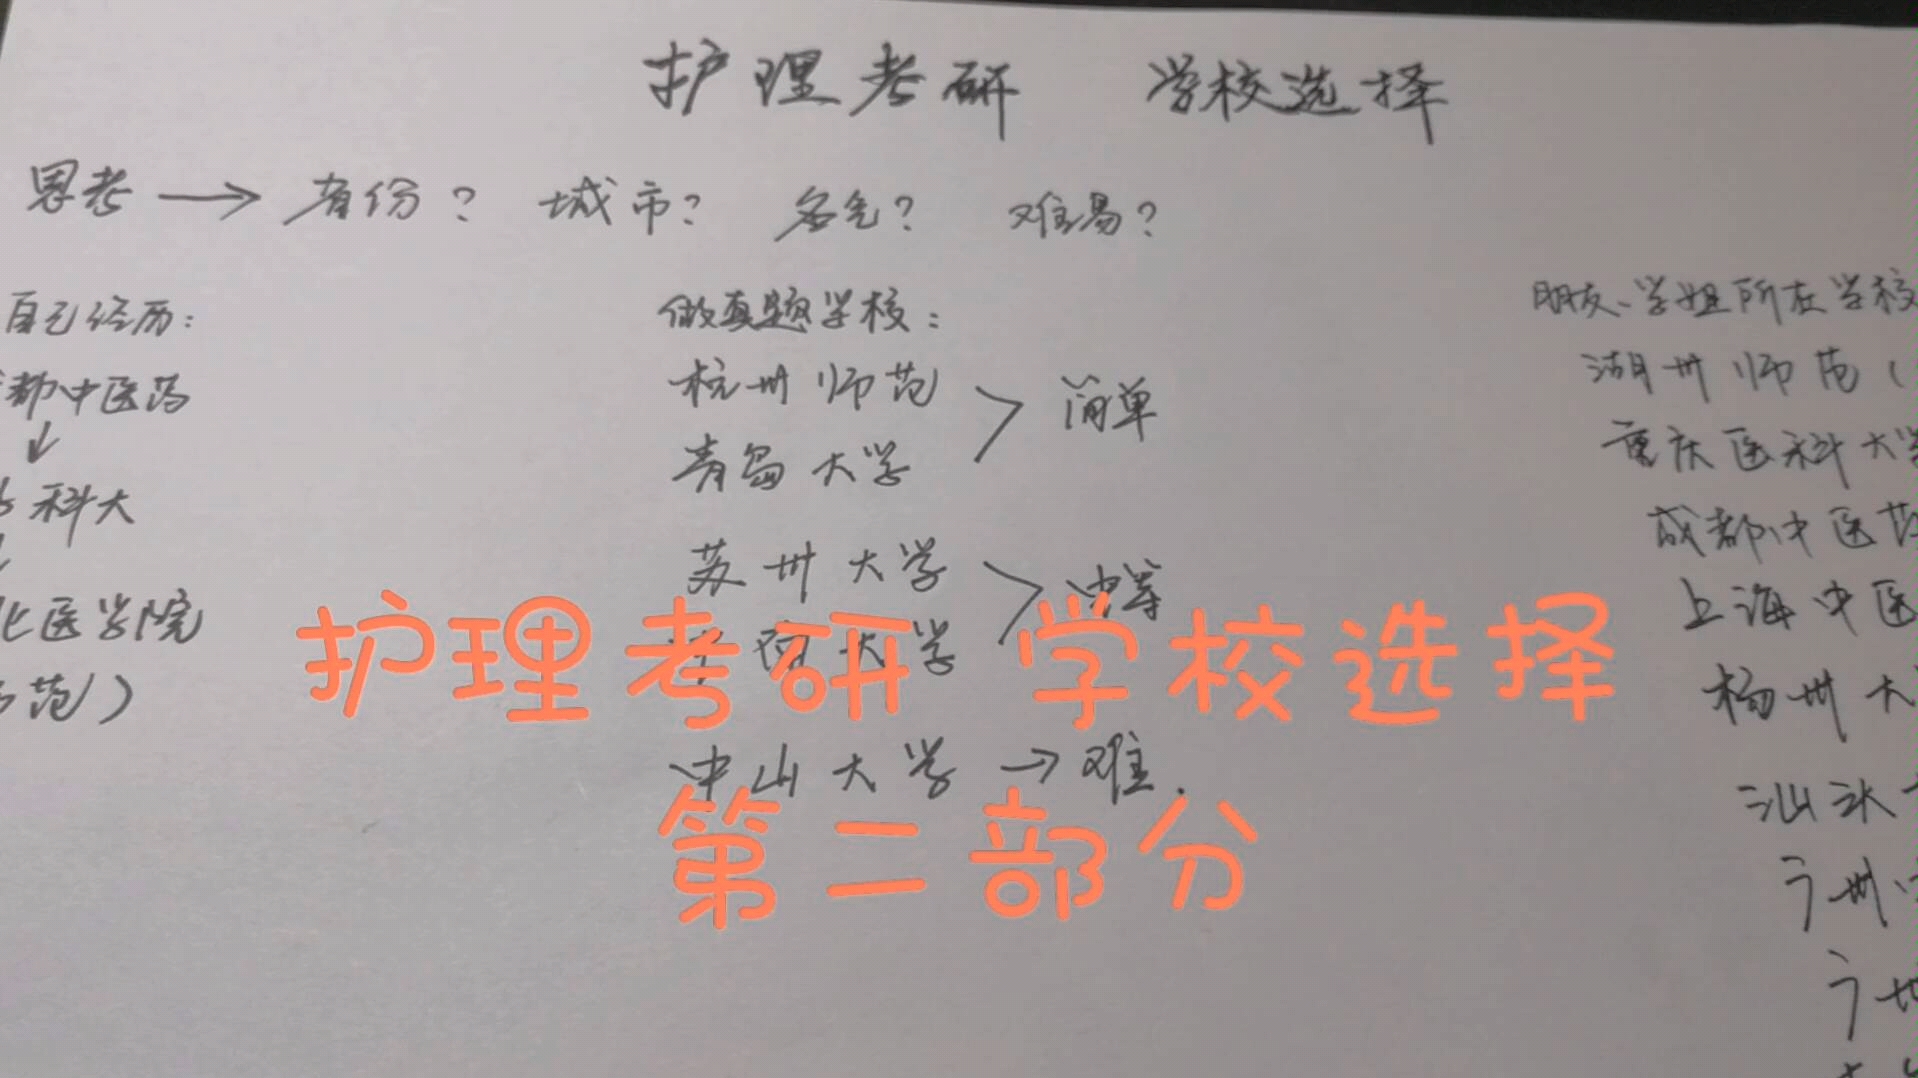 护理考研 学校选择
思考 → 省份? 城市? 名气? 难易?
自己经历:
都中医药
↓
科大
北医学院
范)
做真题学校:
杭州师范
青岛大学
> 简单
苏州大学
大学
> 中等
中山大学 → 难.
朋友、学姐所在学校
湖州师范(
重庆医科大学
成都中医药
上海中医
杨州大
汕头
广州中
广
护理考研 学校选择
第二部分